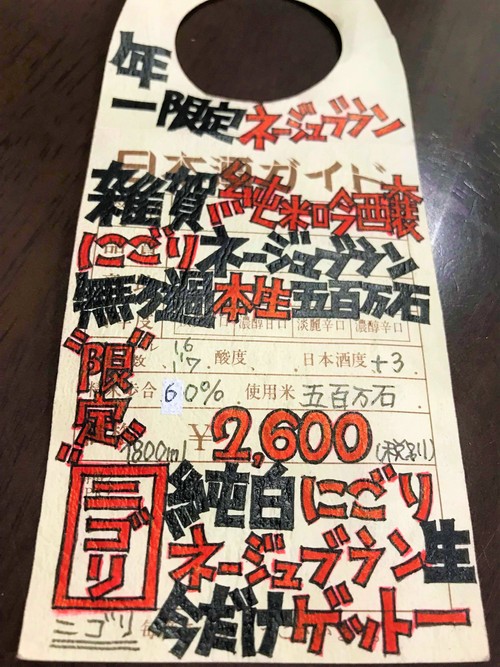 年一限定ネージュブラン
日本酒ガイド
雑賀純米吟醸
にごりネージュブラン
無ろ過本生五百万石
濃醇甘口 淡麗辛口 濃醇辛口
16 17 酸度 日本酒度 +3
歩合 60% 使用米 五百万石
"限定"
1800ml ¥2,600(税別)
ニゴリ
純白にごり
ネージュブラン生
今だけゲットー
ニゴリ